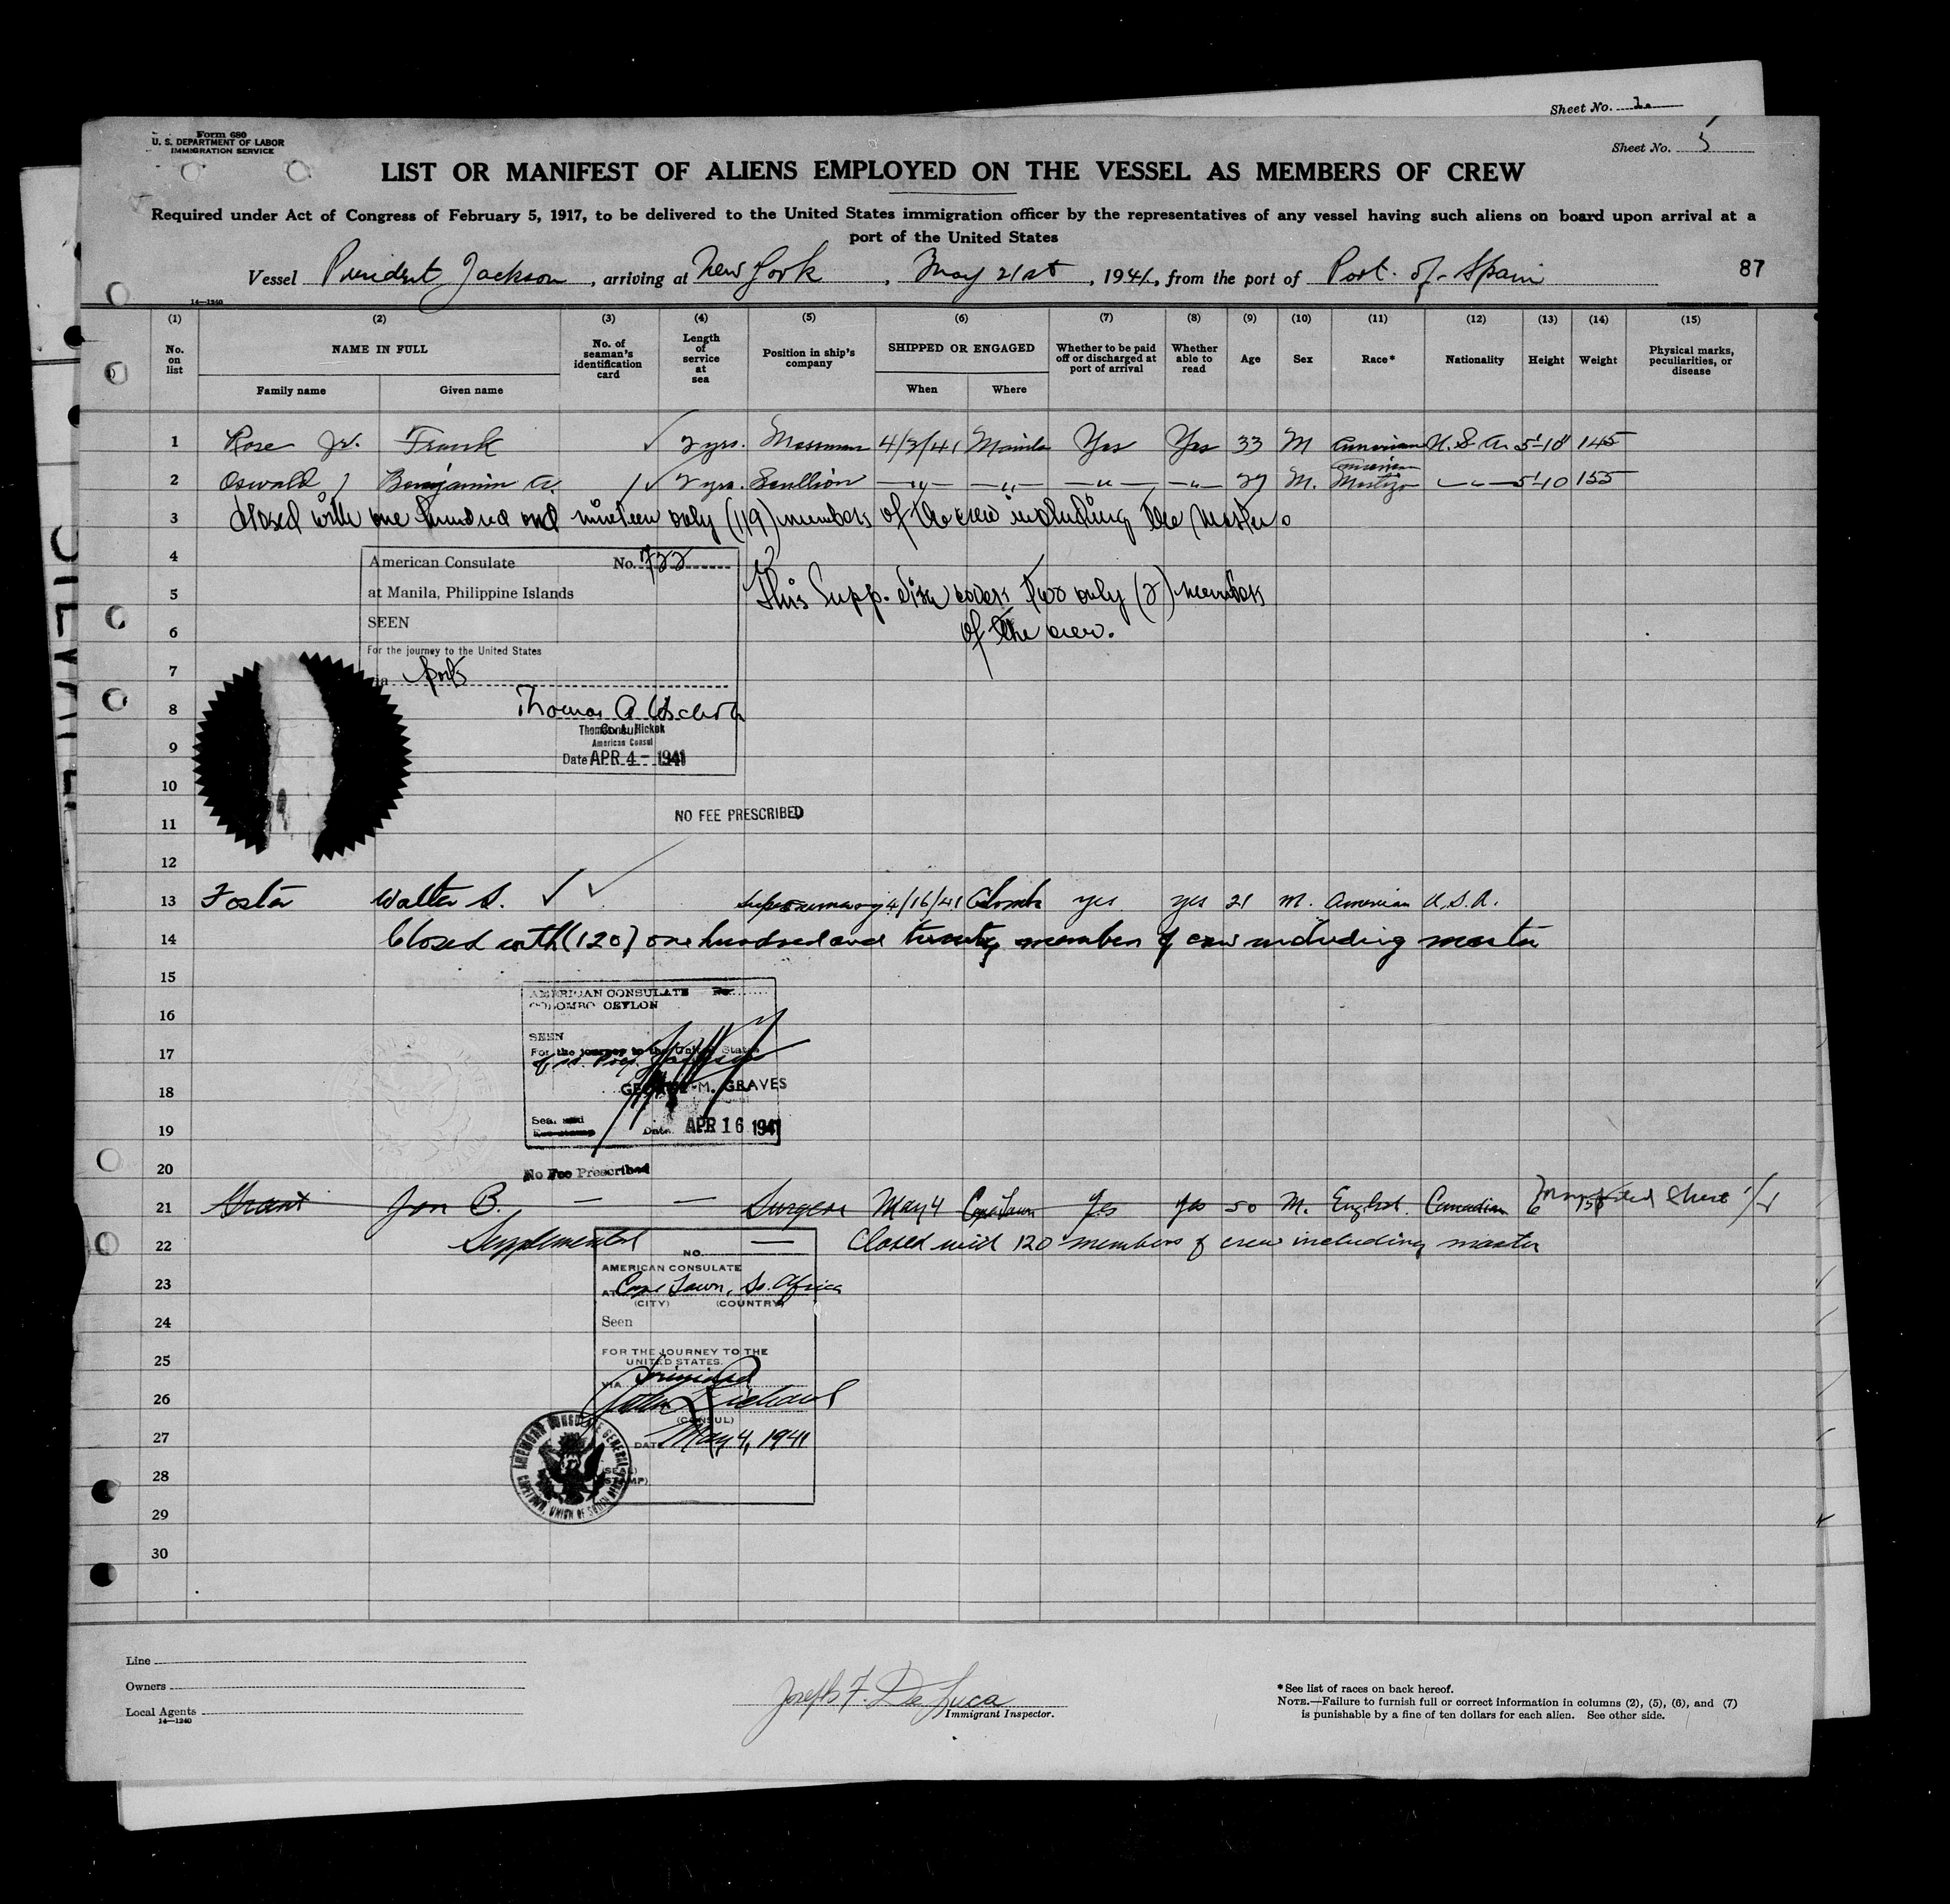 Sheet No. 1.
Form 680
U. S. DEPARTMENT OF LABOR
IMMIGRATION SERVICE
Sheet No. 5
LIST OR MANIFEST OF ALIENS EMPLOYED ON THE VESSEL AS MEMBERS OF CREW
Required under Act of Congress of February 5, 1917, to be delivered to the United States immigration officer by the representatives of any vessel having such aliens on board upon arrival at a
port of the United States
Vessel President Jackson, arriving at New York, May 21st, 1941, from the port of Port-of-Spain
87
14—1240
(1) (2) (3) (4) (5) (6) (7) (8) (9) (10) (11) (12) (13) (14) (15)
No. on list NAME IN FULL No. of seaman's identification card Length of service at sea Position in ship's company SHIPPED OR ENGAGED Whether to be paid off or discharged at port of arrival Whether able to read Age Sex Race* Nationality Height Weight Physical marks, peculiarities, or disease
Family name Given name When Where
1 Rose Jr. Frank 2 yrs. Messman 4/3/41 Manila Yes Yes 33 M American U.S.A. 5'-10" 145
2 Oswald, Benjamin A. 2 yrs. Scullion —"— —"— —"— —"— 29 M. American Mestizo —"— 5'-10 155
3 Closed with one hundred and nineteen only (119) members of the crew including the Master.
4
American Consulate No. 722
5
at Manila, Philippine Islands
This Supp. visa covers Two only (2) members
6
SEEN
of the crew.
For the journey to the United States
7
via ports
8
Thomas A. Hickok
9
Consul
American Consul
Date APR 4 - 1941
10
11
NO FEE PRESCRIBED
12
13 Foster Walter S. Supernumerary 4/16/41 Colombo yes yes 21 M. American U.S.A.
14 Closed with (120) one hundred and twenty members of crew including master
15
AMERICAN CONSULATE No.
COLOMBO CEYLON
16
SEEN
17
For the journey to the United States
s.s. Pres. Jackson
18
GEORGE M. GRAVES
19
Seal and
Date APR 16 1941
20
No Fee Prescribed
21 Grant Jon B. — — Surgeon May 4 Cape Town Yes Yes 50 M. English Canadian 6
22 Supplemental — Closed with 120 members of crew including master
NO.
AMERICAN CONSULATE
23
AT Cape Town, So. Africa
(CITY) (COUNTRY)
24
Seen
25
FOR THE JOURNEY TO THE
UNITED STATES.
VIA Trinidad
26
(CONSUL)
27
DATE May 4, 1941
28
(SEAL)
(STAMP)
AMERICAN CONSULATE GENERAL
CAPETOWN, UNION OF SOUTH AFRICA
29
30
Line
Owners
Local Agents
14—1240
Joseph F. De Luca
Immigrant Inspector.
*See list of races on back hereof.
NOTE.—Failure to furnish full or correct information in columns (2), (5), (6), and (7)
is punishable by a fine of ten dollars for each alien. See other side.